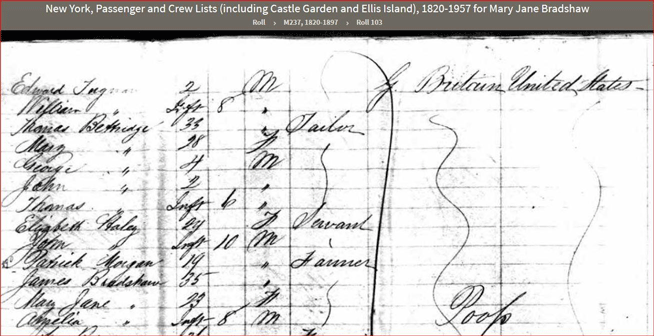 New York, Passenger and Crew Lists (including Castle Garden and Ellis Island), 1820-1957 for Mary Jane Bradshaw
Roll › M237, 1820-1897 › Roll 103
Edward Ingman 2 M G Britain United States
William " Inft 8 "
Thomas Bettridge 33 " Tailor
Mary " 28 F
George " 4 M
John " 2 "
Thomas " Inft 6 "
Elizabeth Haley 24 F Servant
John " Inft 10 M
Patrick Morgan 19 " Farmer
James Bradshaw 35 "
Mary Jane " 23 F
Amelia " Inft 8 M Poop